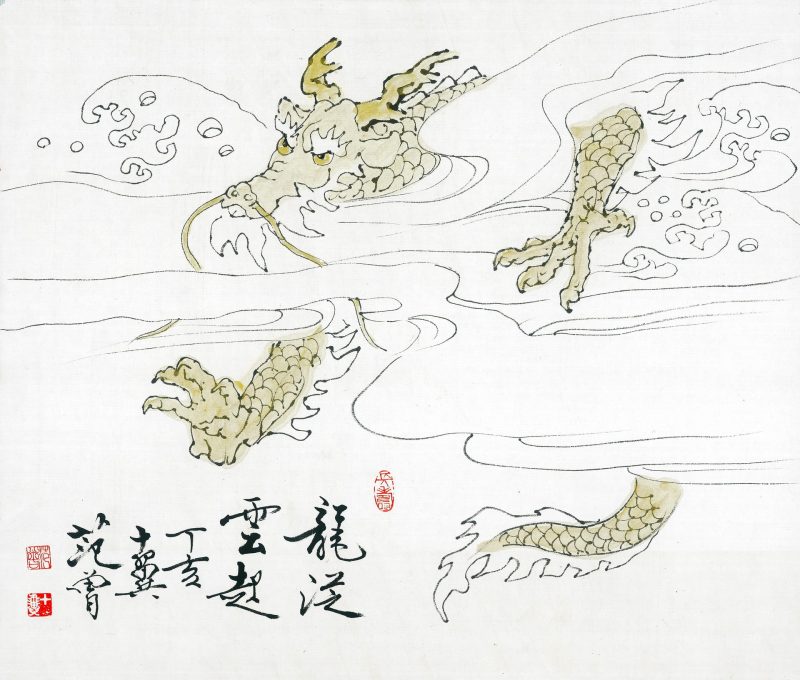 龍從
雲起
丁亥
十翼
范曾
十翼